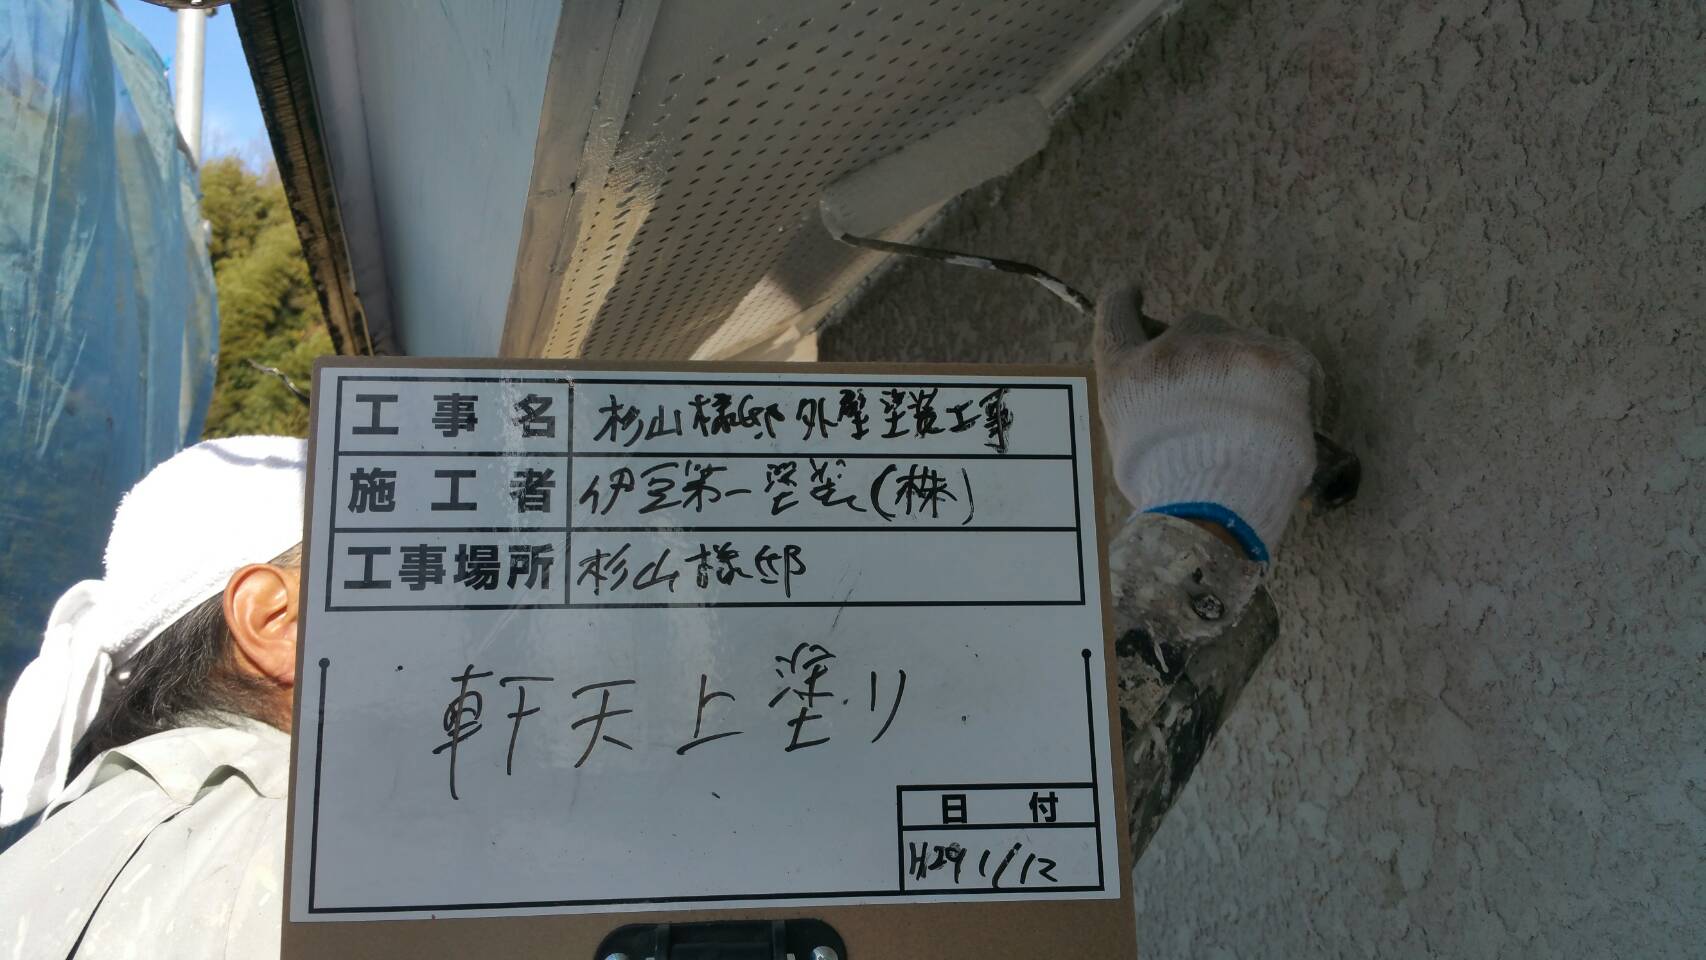 工事名 杉山様邸外壁塗装工事
施工者 伊豆第一塗装(株)
工事場所 杉山様邸
軒天上塗り
日付
H29 1/12